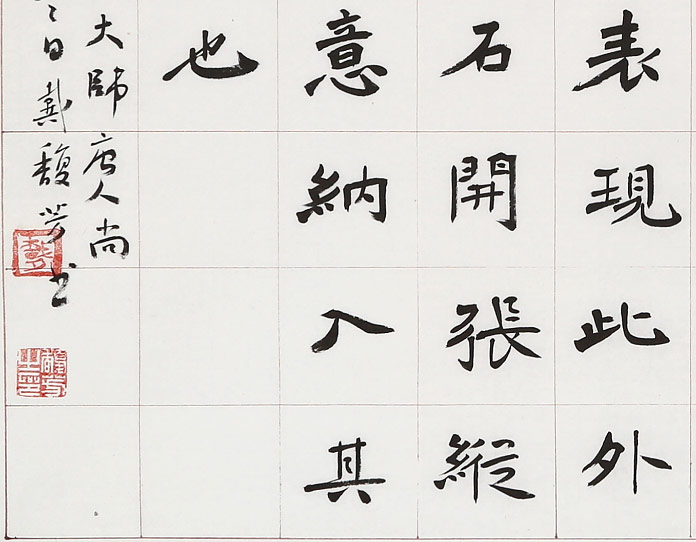 表現此外
石開張縱
意納入其
也
大師唐人尚
日戴馥芳书